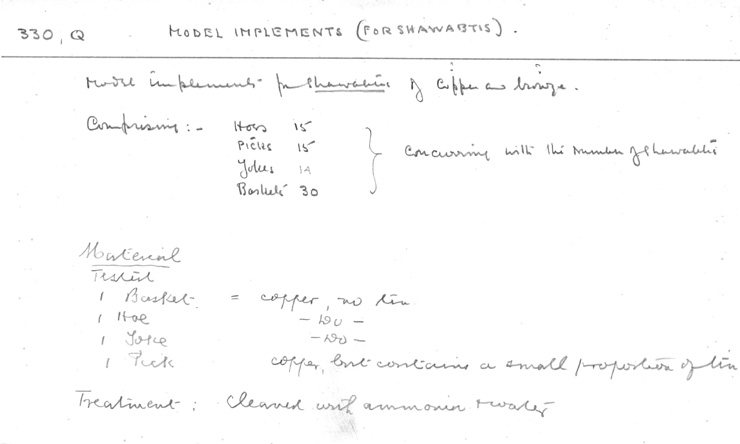 330, Q MODEL IMPLEMENTS (FOR SHAWABTIS).
Model implements for shawabtis of copper or bronze.
Comprising:- Hoes 15
Picks 15
Yokes 14
Baskets 30
Concurring with the number of shawabtis
Material
Tested
1 Basket = copper, no tin
1 Hoe - Do -
1 Yoke - Do -
1 Pick copper, but contains a small proportion of tin
Treatment: Cleaned with ammonia & water